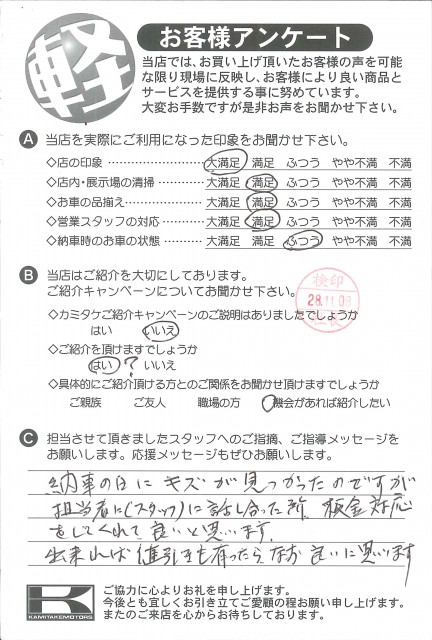 軽
お客様アンケート
当店では、お買い上げ頂いたお客様の声を可能
な限り現場に反映し、お客様により良い商品と
サービスを提供する事に努めています。
大変お手数ですが是非お声をお聞かせ下さい。
A 当店を実際にご利用になった印象をお聞かせ下さい。
◇店の印象 …………………… 大満足 満足 ふつう やや不満 不満
◇店内・展示場の清掃………… 大満足 満足 ふつう やや不満 不満
◇お車の品揃え………………… 大満足 満足 ふつう やや不満 不満
◇営業スタッフの対応………… 大満足 満足 ふつう やや不満 不満
◇納車時のお車の状態………… 大満足 満足 ふつう やや不満 不満
B 当店はご紹介を大切にしてあります。
ご紹介キャンペーンについてお聞かせ下さい。
検印
28.11.08
◇カミタケご紹介キャンペーンのご説明はありましたでしょうか
はい いいえ
◇ご紹介を頂けますでしょうか
はい ? いいえ
◇具体的にご紹介頂ける方とのご関係をお聞かせ頂けますでしょうか
ご親族 ご友人 職場の方 機会があれば紹介したい
C 担当させて頂きましたスタッフへのご指摘、ご指導メッセージを
お願いします。応援メッセージもぜひお願いします。
納車の日にキズが見つかったのですが
担当者に(スタッフ)に話し合った所、板金対応
をしてくれて良いと思います。
出来れば値引きも有ったらなお良いに思います
K
KAMITAKEMOTORS
ご協力に心よりお礼を申し上げます。
今後とも宜しくお引き立てご愛顧の程お願い申し上げます。
またのご来店を心からお待ちしております。